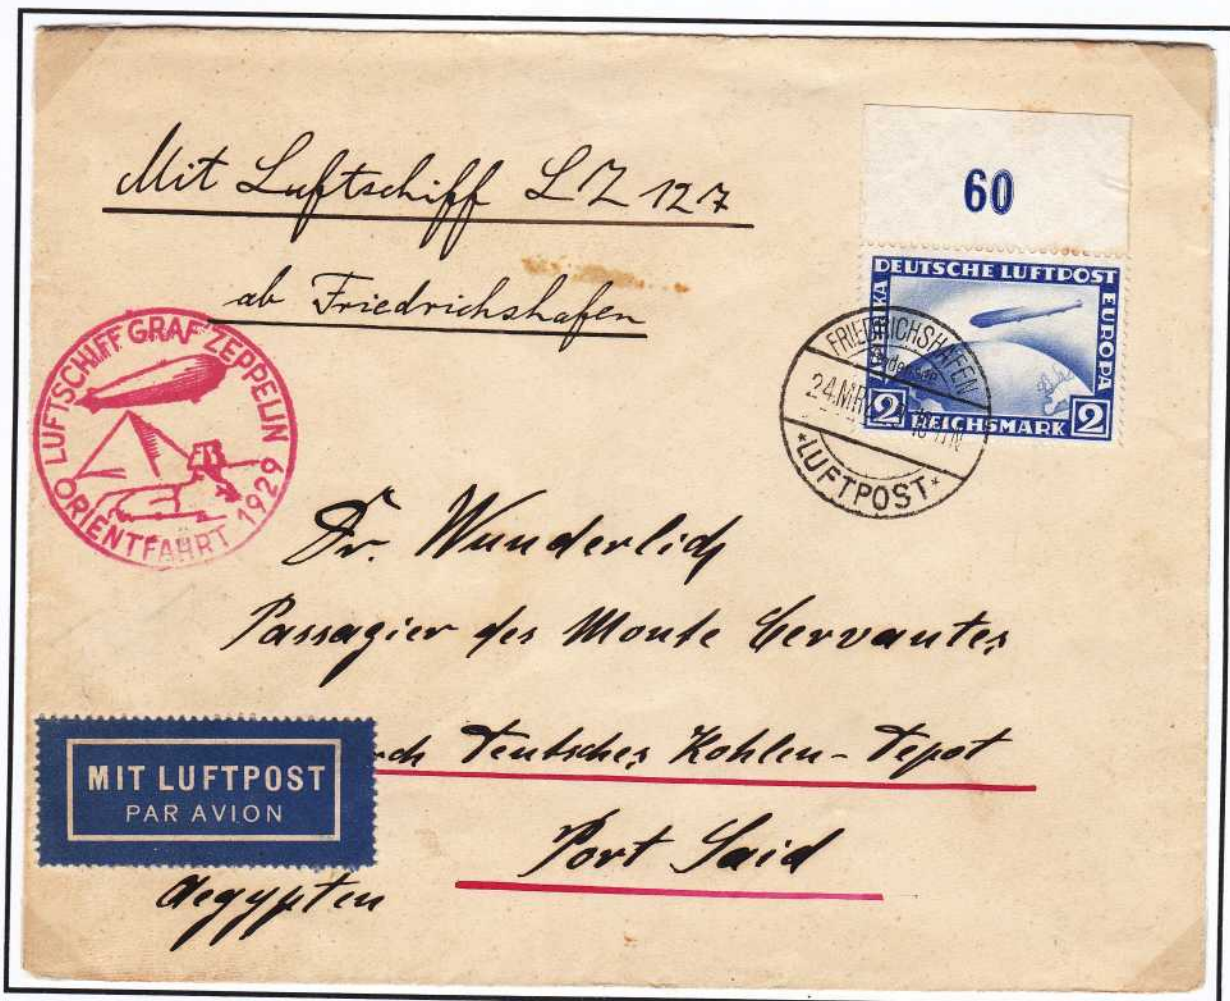 Mit Luftschiff LZ 127
ab Friedrichshafen
60
DEUTSCHE LUFTPOST
EUROPA
2 REICHSMARK 2
FRIEDRICHSHAFEN
24.MRZ
*LUFTPOST*
LUFTSCHIFF GRAF ZEPPELIN
ORIENTFAHRT 1929
Dr. Wunderlich
Passagier des Monte Cervantes
Deutsches Kohlen-Depot
MIT LUFTPOST
PAR AVION
Port Said
Aegypten